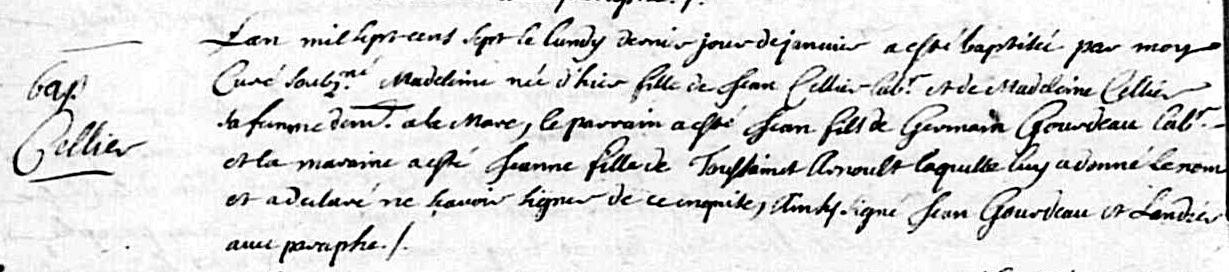 Bap.
Cellier
L'an mil sept cens sept le lundy dernier jour de janvier a esté baptisée par moy
Curé soubz.né Madeleine née d'hier fille de Jean Cellier lab.r et de Madeleine Cellier
sa femme dem.t a la Mare, le parrain a esté Jean fils de Germain Gourdeau lab.r
et la maraine a esté Jeanne fille de Toussaint Arnoult laquelle luy a donné le nom
et a declaré ne scavoir signer de ce enquise, Ainsy signé Jean Gourdeau et Landrés
avec paraphe ./.